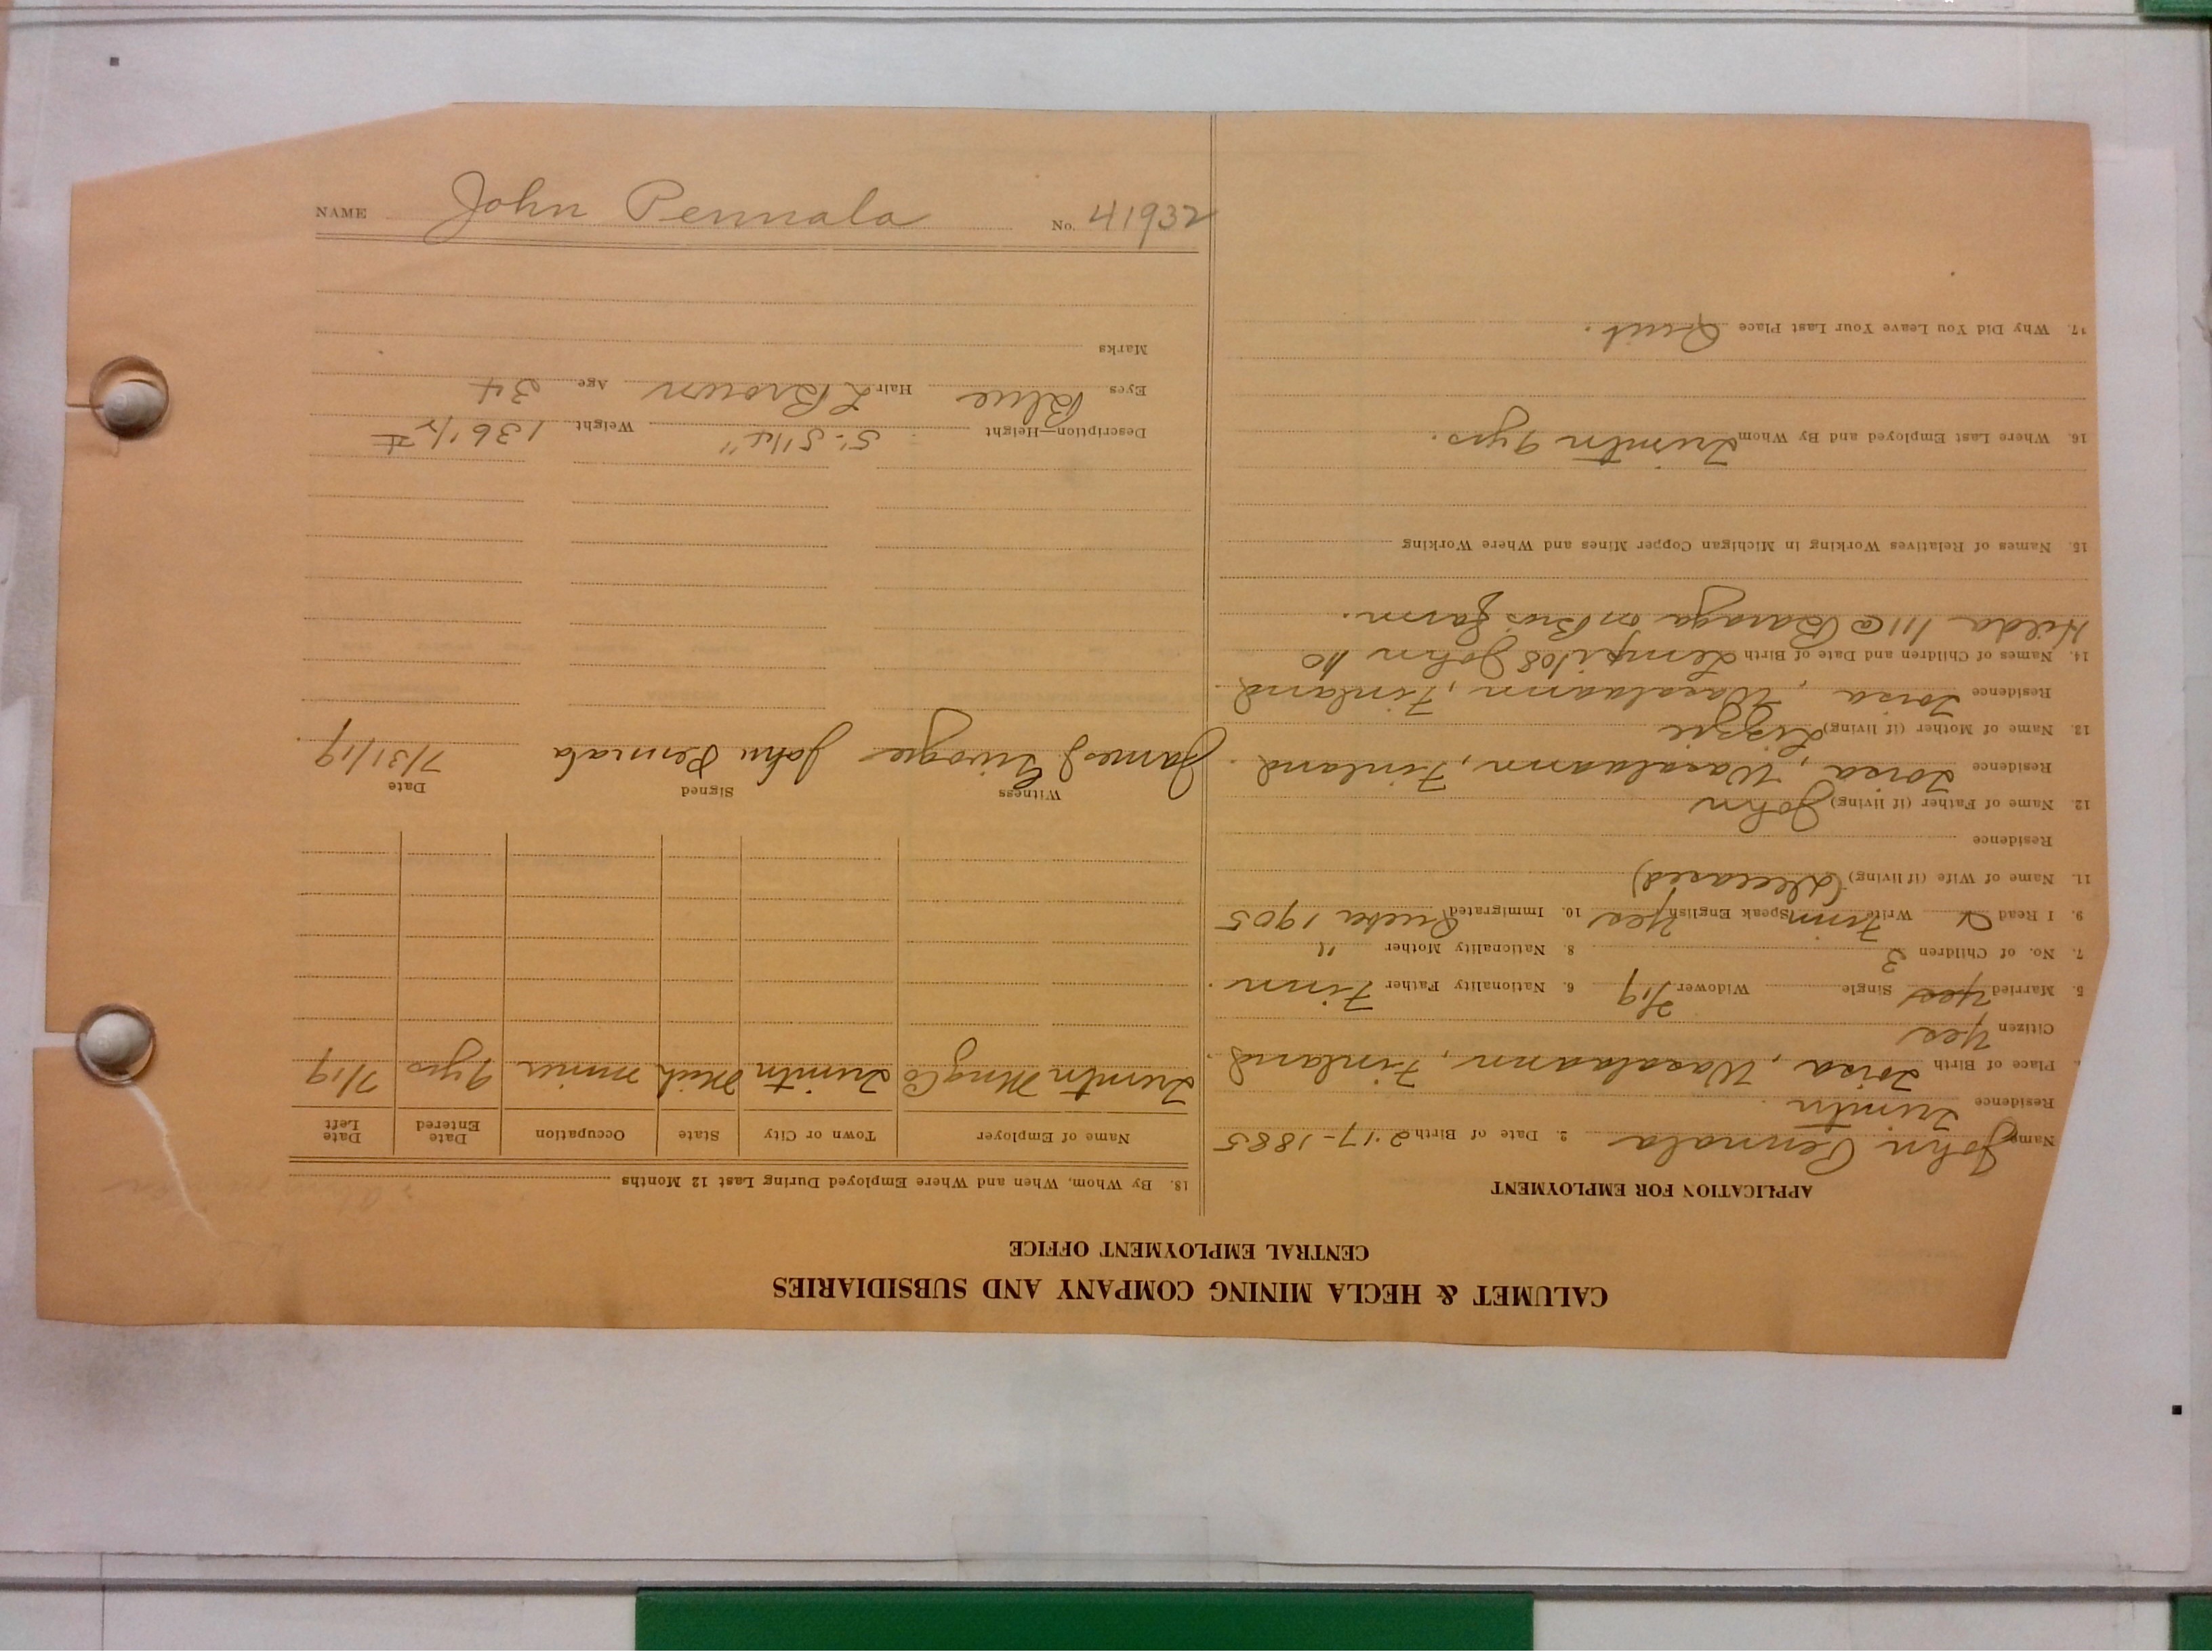 CALUMET & HECLA MINING COMPANY AND SUBSIDIARIES
CENTRAL EMPLOYMENT OFFICE
APPLICATION FOR EMPLOYMENT
Name John Pennala 2. Date of Birth 2-17-1885
Residence Trimtn.
Place of Birth Soisa, Wasalaann, Finland.
Citizen Yes
5. Married Yes Single Widower 7/19 6. Nationality Father Finn.
7. No. of Children 3 8. Nationality Mother "
9. I Read Write Finn Speak English Yes 10. Immigrated 1905
11. Name of Wife (if living) (Deceased)
Residence
12. Name of Father (if living) John
Residence Soisa, Wasalaann, Finland.
13. Name of Mother (if living) Lizzie
Residence Soisa, Wasalaann, Finland.
14. Names of Children and Date of Birth Lempi '08 John '10
Hilda '11 @ Baraga on Bros farm.
15. Names of Relatives Working in Michigan Copper Mines and Where Working
16. Where Last Employed and By Whom Trimtn 9 yrs.
17. Why Did You Leave Your Last Place Quit.
18. By Whom, When and Where Employed During Last 12 Months
Name of Employer Town or City State Occupation Date Entered Date Left
Trimtn Mng Co Trimtn Mich miner 9 yrs 7/19
Witness Signed Date
James J John Pennala 7/31/19
Description—Height 5'-5 1/4" Weight 136 1/2 #
Eyes Blue Hair L Brown Age 34
Marks
NAME John Pennala No. 41932